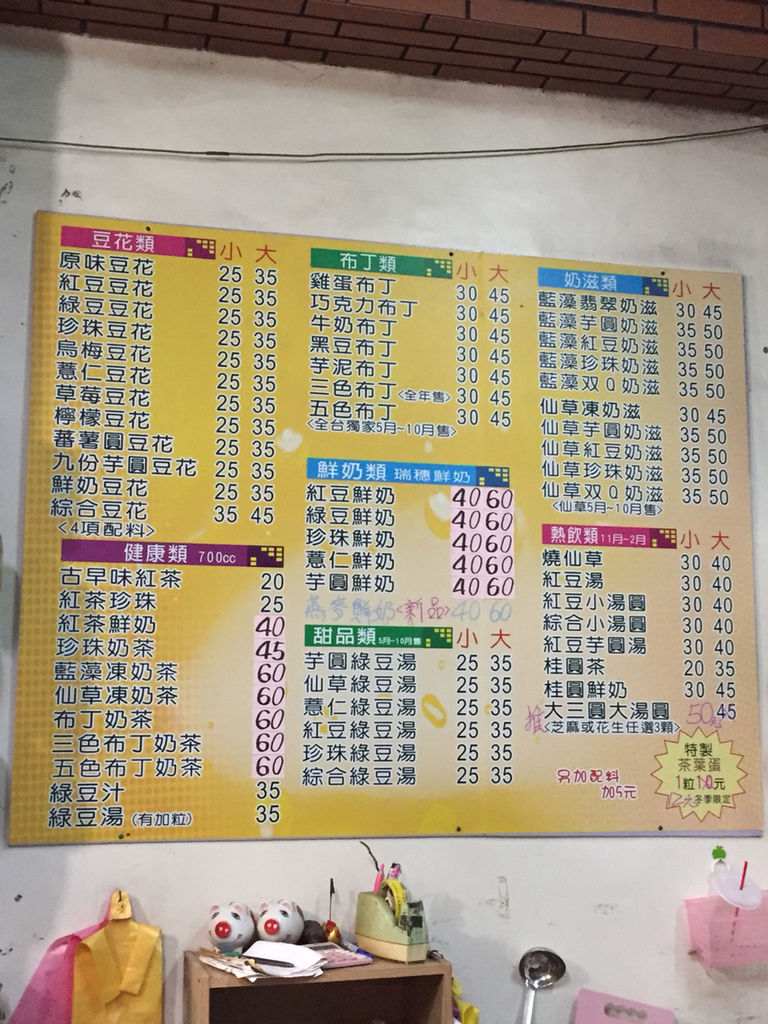 豆花類 小 大
原味豆花 25 35
紅豆豆花 25 35
綠豆豆花 25 35
珍珠豆花 25 35
烏梅豆花 25 35
薏仁豆花 25 35
草莓豆花 25 35
檸檬豆花 25 35
蕃薯圓豆花 25 35
九份芋圓豆花 25 35
鮮奶豆花 25 35
綜合豆花 35 45
<4項配料>
健康類 700cc
古早味紅茶 20
紅茶珍珠 25
紅茶鮮奶 40
珍珠奶茶 45
藍藻凍奶茶 60
仙草凍奶茶 60
布丁奶茶 60
三色布丁奶茶 60
五色布丁奶茶 60
綠豆汁 35
綠豆湯(有加粒) 35
布丁類 小 大
雞蛋布丁 30 45
巧克力布丁 30 45
牛奶布丁 30 45
黑豆布丁 30 45
芋泥布丁 30 45
三色布丁<全年售> 30 45
五色布丁 30 45
<全台獨家5月~10月售>
鮮奶類 瑞穗鮮奶
紅豆鮮奶 40 60
綠豆鮮奶 40 60
珍珠鮮奶 40 60
薏仁鮮奶 40 60
芋圓鮮奶 40 60
燕麥鮮奶<新品> 40 60
甜品類 5月~10月售 小 大
芋圓綠豆湯 25 35
仙草綠豆湯 25 35
薏仁綠豆湯 25 35
紅豆綠豆湯 25 35
珍珠綠豆湯 25 35
綜合綠豆湯 25 35
奶滋類 小 大
藍藻翡翠奶滋 30 45
藍藻芋圓奶滋 35 50
藍藻紅豆奶滋 35 50
藍藻珍珠奶滋 35 50
藍藻双Q奶滋 35 50
仙草凍奶滋 30 45
仙草芋圓奶滋 35 50
仙草紅豆奶滋 35 50
仙草珍珠奶滋 35 50
仙草双Q奶滋 35 50
<仙草5月~10月售>
熱飲類 11月~2月 小 大
燒仙草 30 40
紅豆湯 30 40
紅豆小湯圓 30 40
綜合小湯圓 30 40
紅豆芋圓湯 30 40
桂圓茶 20 35
桂圓鮮奶 30 45
推 大三圓大湯圓 50元 45
<芝麻或花生任選3顆>
另加配料
加5元
特製
茶葉蛋
1粒10元
12元 冬季限定